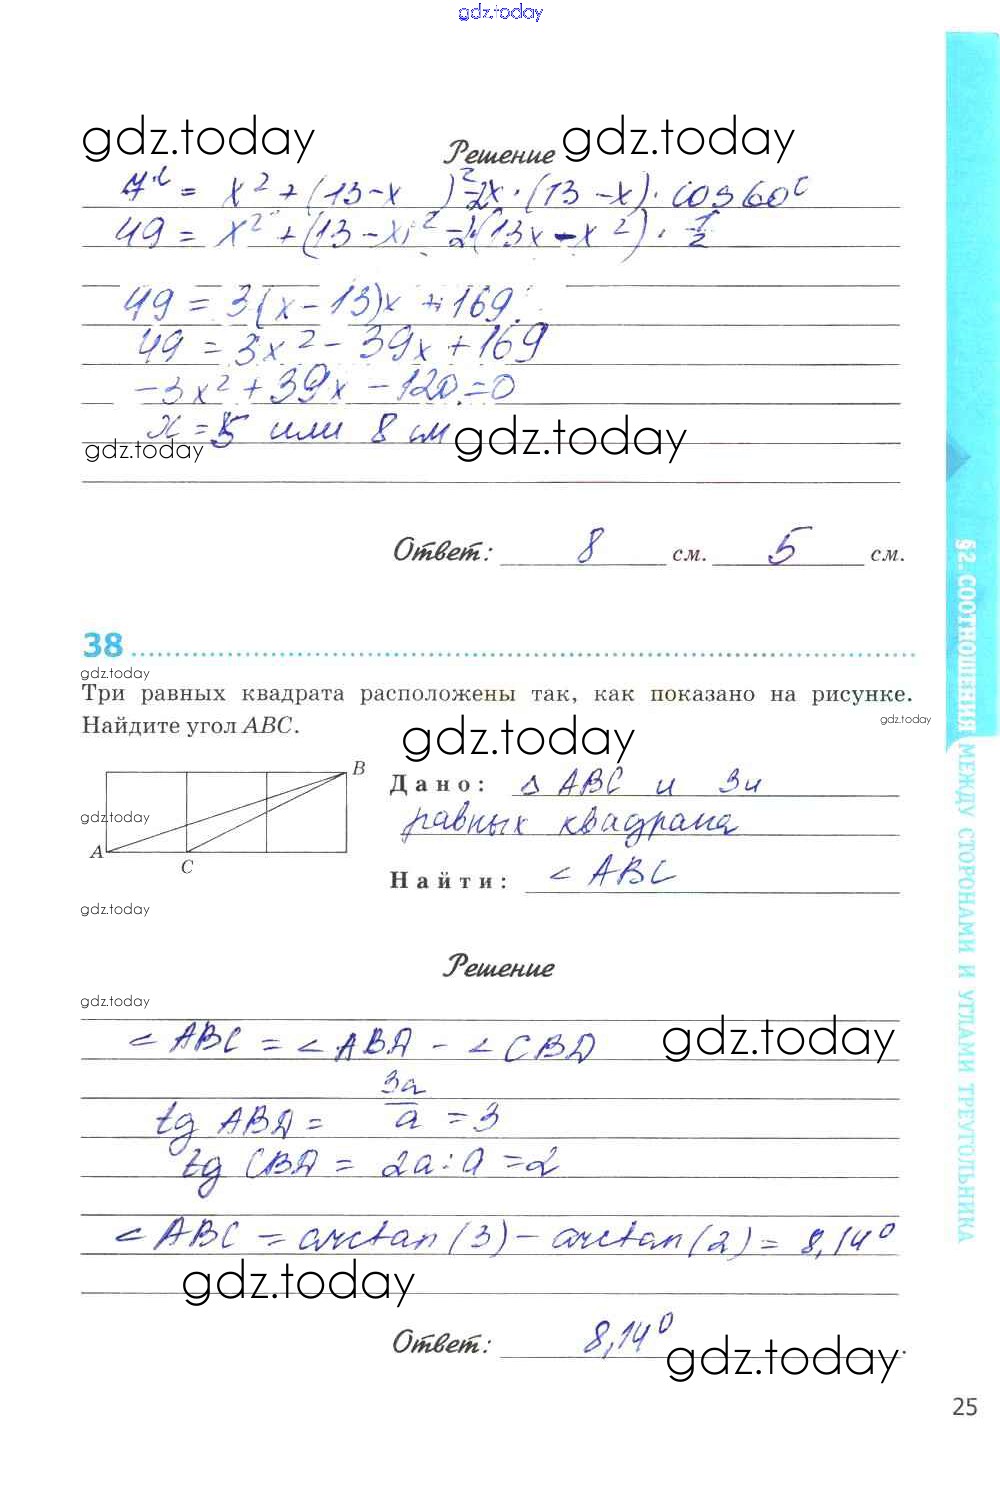 gdz.today
gdz.today Решение gdz.today
= x² + (13-x)² - 2x · (13-x) · cos 60°
49 = x² + (13-x)² - 2·(13x - x²) · 1/2
49 = 3(x-13)x + 169
49 = 3x² - 39x + 169
-3x² + 39x - 120 = 0
x = 5 или 8 см gdz.today
gdz.today
Ответ: 8 см. 5 см.
38
gdz.today
Три равных квадрата расположены так, как показано на рисунке.
Найдите угол ABC.
gdz.today
gdz.today
B
Дано: Δ ABC и 3и
gdz.today
равных квадрата
A
C
Найти: ∠ ABC
gdz.today
Решение
gdz.today
∠ ABC = ∠ ABD - ∠ CBD
gdz.today
tg ABD = 3a/a = 3
tg CBD = 2a : a = 2
∠ ABC = arctan(3) - arctan(2) = 8,14°
gdz.today
Ответ: 8,14°.
gdz.today
§2. СООТНОШЕНИЯ МЕЖДУ СТОРОНАМИ И УГЛАМИ ТРЕУГОЛЬНИКА
25